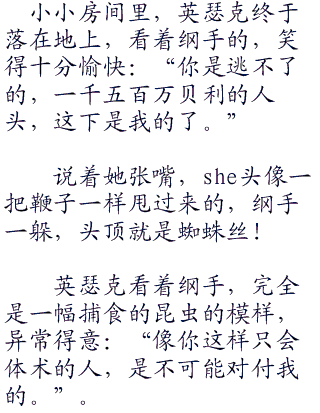 小小房间里，英瑟克终于
落在地上，看着纲手的，笑
得十分愉快：“你是逃不了
的，一千五百万贝利的人
头，这下是我的了。”
说着她张嘴，she头像一
把鞭子一样甩过来的，纲手
一躲，头顶就是蜘蛛丝！
英瑟克看着纲手，完全
是一幅捕食的昆虫的模样，
异常得意：“像你这样只会
体术的人，是不可能对付我
的。”。